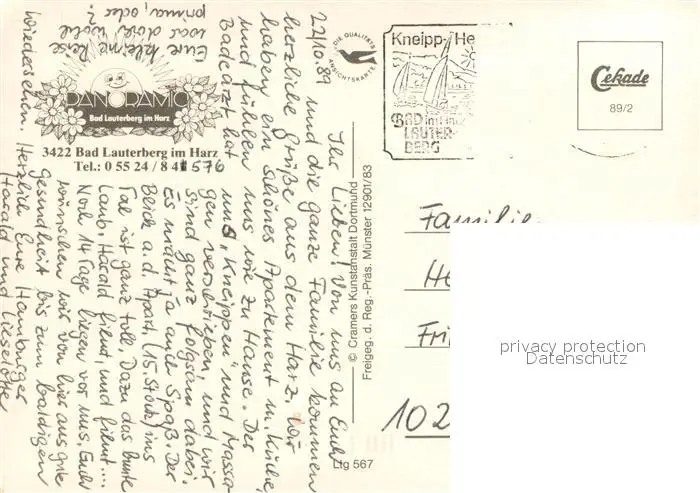 22/10.89
Ihr Lieben! Von uns an Euch
und die ganze Familie kommen
herzliche Grüße aus dem Harz. Wir
haben ein schönes Apartement m. Küche,
und fühlen uns wie zu Hause. Der
Badearzt hat uns „Kneippen" und Massa-
gen verschrieben, und wir
sind ganz folgsam dabei.
Es macht ja auch Spaß. Der
Blick a. d. Apart. (15. Stock) ins
Tal ist ganz toll. Dazu das bunte
Laub. Harald filmt, und filmt....
Noch 14 Tage liegen vor uns. Euch
wünschen wir von hier aus gute
Gesundheit bis zum baldigen
Wiedersehen. Herzlich Eure Hamburger
Harald und Lieselotte
Eure kleine Reise
war doch wohl
prima, oder?
PANORAMIC
Bad Lauterberg im Harz
3422 Bad Lauterberg im Harz
Tel.: 0 55 24 / 8 41 576
DIE QUALITÄTS
ANSICHTSKARTE
© Cramers Kunstanstalt Dortmund
Freigeg. d. Reg.-Präs. Münster 12901/83
Ltg 567
Kneipp-He
BAD im Harz
LAUTER-
BERG
Cekade
89/2
Familie
He
Fri
102
privacy protection
Datenschutz